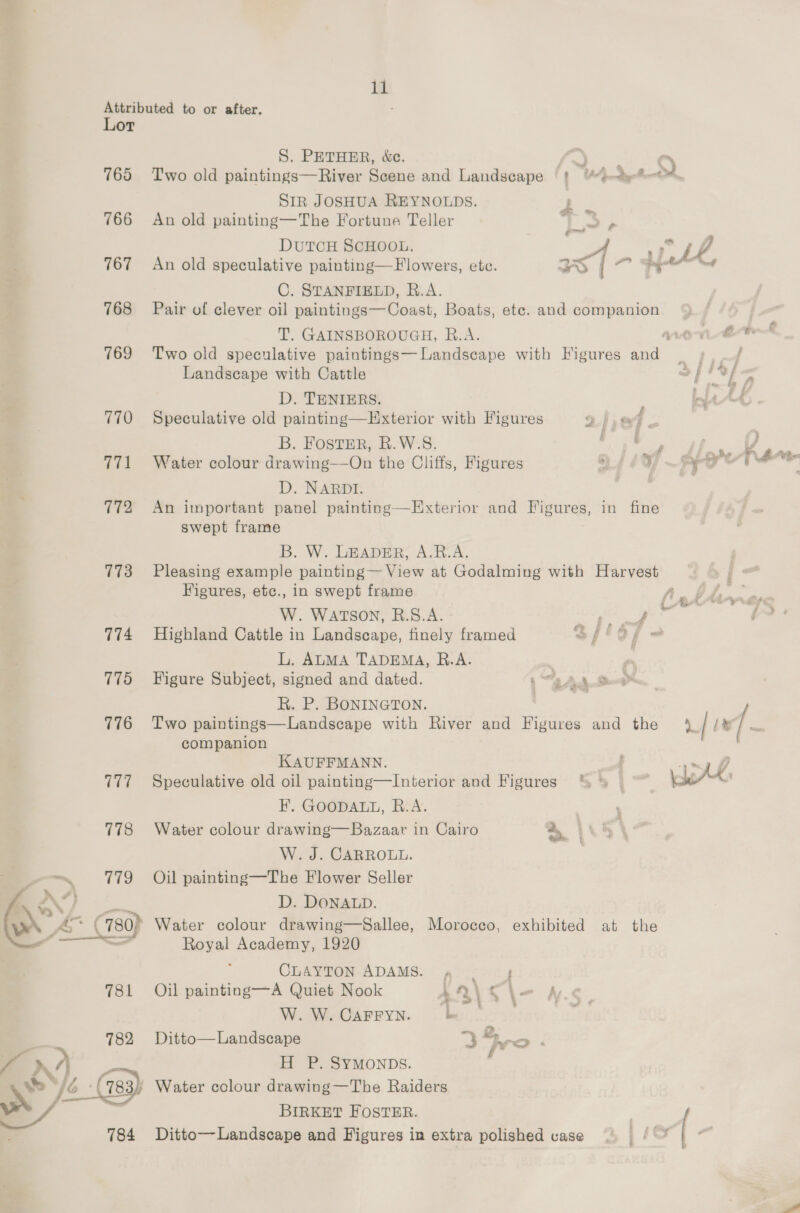 11
Attributed to or after.
Lot
S. PETHER, &c.
765 Two old paintings—River Scene and Landscape
SIR JOSHUA REYNOLDS.
766 An old painting—The Fortune Teller
DUTCH SCHOOL.
767 An old speculative painting—Flowers, etc.
C. STANFIELD, R.A.
768 Pair of clever oil paintings—Coast, Boats, etc. and companion
T. GAINSBOROUGH, R.A.
769 Two old speculative paintings—Landscape with Figures and
Landscape with Cattle
D. TENIERS.
770 Speculative old painting—Exterior with Figures
B. FOSTER, R.W.S.
771 Water colour drawing—On the Cliffs, Figures
D. NARDI.
772 An important panel painting—Exterior and Figures, in fine
swept frame
B. W. LEADER, A.R.A.
773 Pleasing example painting—View at Godalming with Harvest
Figures, etc., in swept frame
W. WATSON, R.S.A.
774 Highland Cattle in Landscape, finely framed
L. ALMA TADEMA, R.A.
775 Figure Subject, signed and dated.
R. P. BONINGTON.
776 Two paintings—Landscape with River and Figures and the
companion
KAUFFMANN.
777 Speculative old oil painting—Interior and Figures
F. GOODALL, R.A.
778 Water colour drawing—Bazaar in Cairo
W. J. CARROLL.
779 Oil painting—The Flower Seller
D. DONALD.
780 Water colour drawing—Sallee, Morocco, exhibited at the
Royal Academy, 1920
CLAYTON ADAMS.
781 Oil painting—A Quiet Nook
W. W. CAFFYN.
782 Ditto—Landscape
H P. SYMONDS.
783 Water colour drawing—The Raiders
BIRKET FOSTER.
784 Ditto—Landscape and Figures in extra polished case